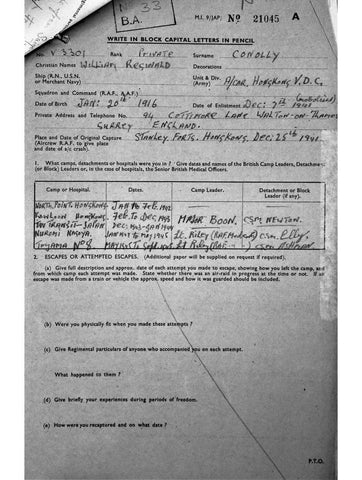 N 33
B.A.
M.I. 9/JAP: No 21045 A
WRITE IN BLOCK CAPITAL LETTERS IN PENCIL.
No. V 3301 Rank PRIVATE Surname CONOLLY
Christian Names WILLIAM REGINALD Decorations
Ship (R.N., U.S.N. or Merchant Navy) Unit & Div. (Army) A/COR, HONGKONG V.D.C.
Squadron and Command (R.A.F., A.A.F.)
Date of Birth JAN: 20th 1916 Date of Enlistment DEC: 7th 1941 (mobolized)
Private Address and Telephone No. 94 COTTIMORE LANE WALTON-ON-THAMES
SURREY ENGLAND.
Place and Date of Original Capture STANLEY FORTS. HONGKONG. DEC: 25th 1941
(Aircrew R.A.F. to give place and date of a/c crash).
1. What camps, detachments or hospitals were you in? Give dates and names of the British Camp Leaders, Detachment (or Block) Leaders or, in the case of hospitals, the Senior British Medical Officers.
Camp or Hospital. Dates. Camp Leader. Detachment or Block Leader (if any).
NORTH POINT. HONGKONG. JAN to Feb. 1942
KOWLOON HONGKONG. Feb. To Dec 1943 MAJOR BOON. CSM NEWTON.
IN TRANSIT - JAPAN Dec. 1943 - JAN 1944
NAGOYA. to MAY 1945 Lt. Riley (RAF) CSM.
TOYAMA No 8. MAY 1945 to Sept. 1945 Lt Riley CSM
2. ESCAPES OR ATTEMPTED ESCAPES. (Additional paper will be supplied on request if required).
(a) Give full description and approx. date of each attempt you made to escape, showing how you left the camp, and from which camp each attempt was made. State whether there was an air-raid in progress at the time or not. If an escape was made from a train or vehicle the approx, speed and how it was guarded should be included.
(b) Were you physically fit when you made these attempts?
(c) Give Regimental particulars of anyone who accompanied you on each attempt.
What happened to them?
(d) Give briefly your experiences during periods of freedom.
(e) How were you recaptured and on what date?
P.T.O.